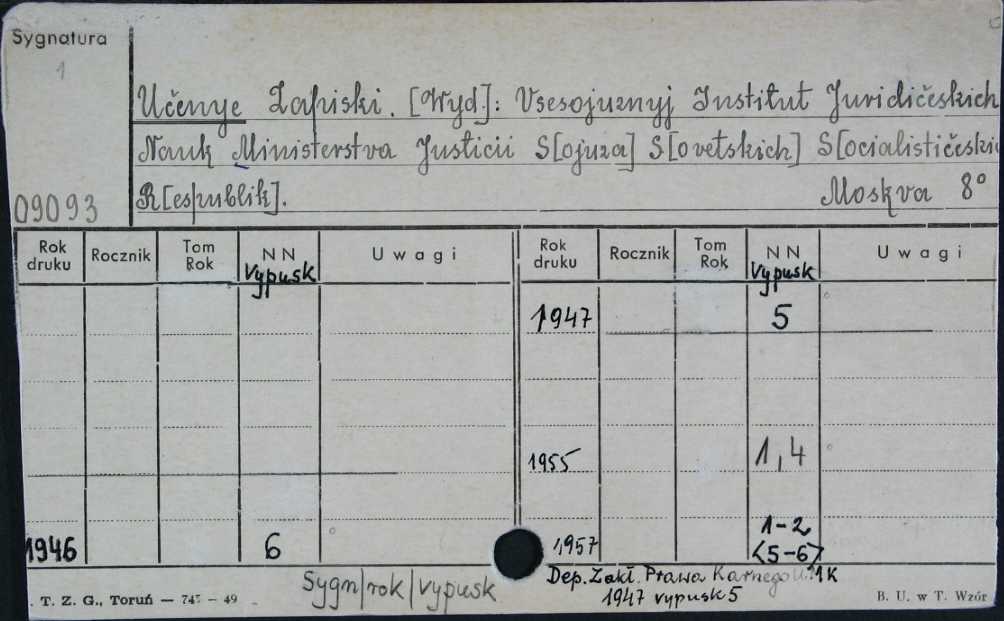 Sygnatura
1
Učenye Zapiski. [Wyd]: Vsesojuznyj Institut Juridičeskich
Nauk Ministerstva Justicii S[ojuza] S[ovetskich] S[ocialističeskic
R[espublik]. Moskva 8°
09093
Rok druku Rocznik Tom Rok NN Vypusk Uwagi Rok druku Rocznik Tom Rok NN Vypusk Uwagi
1947 5
1955 1,4
1946 6 1957 1-2 <5-6>
Dep. Zakł. Prawa Karnego 1K
Sygn/rok/vypusk 1947 vypusk 5
. T. Z. G., Toruń — 745 — 49 B. U. w T. Wzór